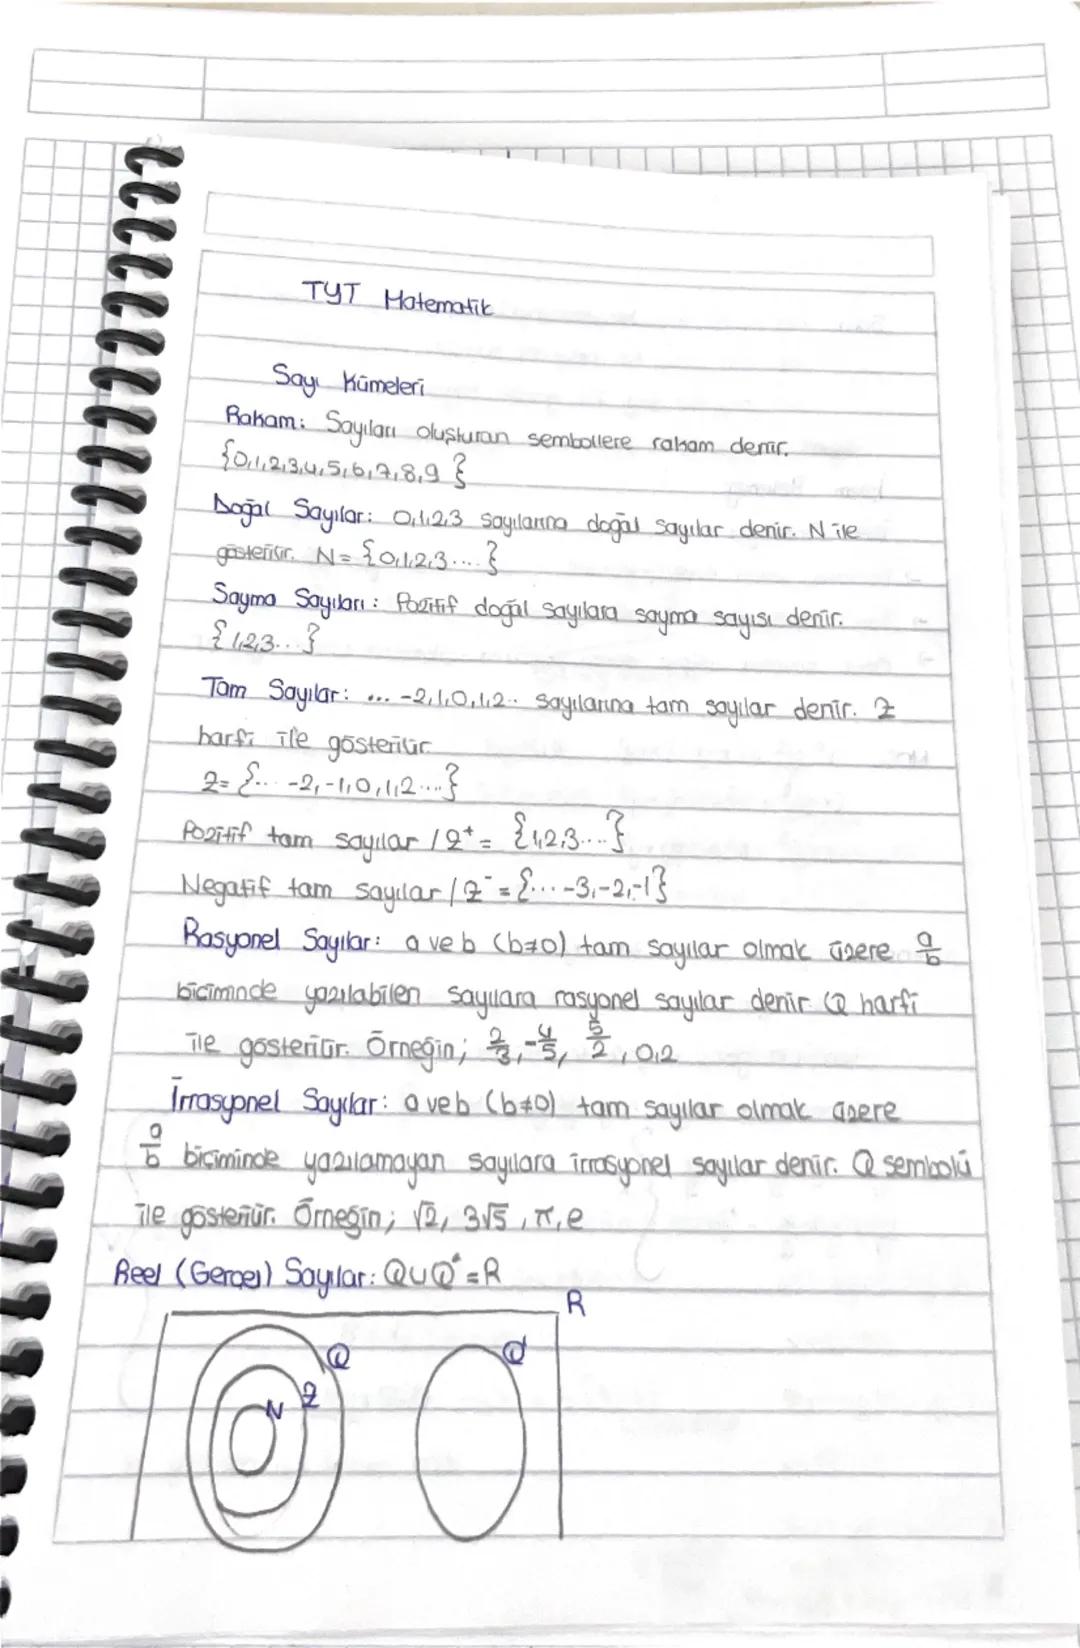 TYT Matematik
Sayı Kümeleri
Rakam: Sayıları oluşturan sembollere rakam denir.
{0,1,2,3,4,5,6,7,8,9}
Doğal Sayılar: 0,1,2,3 sayılarına doğal sayılar denir. N ile
gösterilir. N = {0,1,2,3....}
Sayma Sayıları: Pozitif doğal sayılara sayma sayısı denir.
{1,2,3...}
Tam Sayılar: ... -2,1,0,1,2.. sayılarına tam sayılar denir. Z
harfi ile gösterilir
Z= {... -2,-1,0,1,2....}
Pozitif tam sayılar / Z⁺ = {1,2,3....}
Negatif tam sayılar / Z⁻ = {...-3,-2,-1}
Rasyonel Sayılar: a ve b (b≠0) tam sayılar olmak üzere a/b
biçiminde yazılabilen sayılara rasyonel sayılar denir Q harfi
ile gösterilir. Örneğin; 2/3, -4/5, 5/2, 0,2
İrrasyonel Sayılar: a ve b (b≠0) tam sayılar olmak üzere
a/b biçiminde yazılamayan sayılara irrasyonel sayılar denir. Q sembolü
ile gösterilir. Örneğin; √2, 3√5, π, e
Reel (Gerçel) Sayılar: Q∪Q' = R
R
Q Q'
Z
N